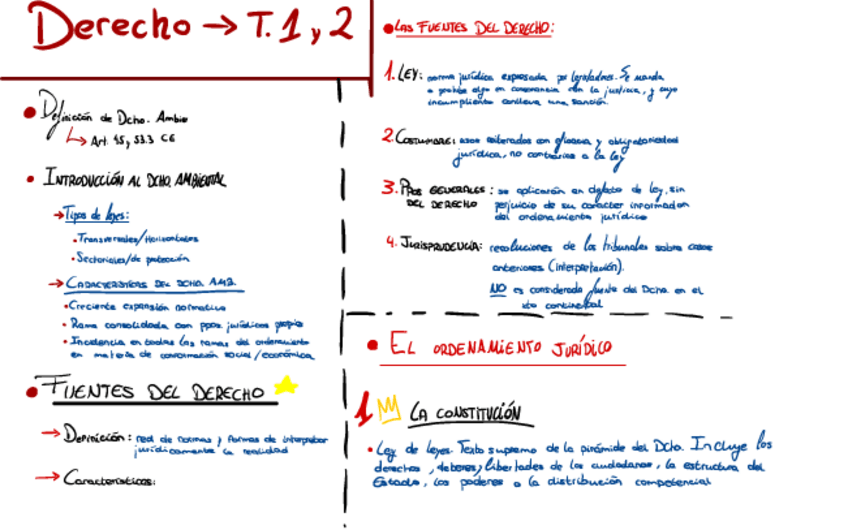 Derecho → T.1 y 2
• Definición de Dcho. Ambie
↳ Art. 45, 53.3 CE
• INTRODUCCIÓN AL DCHO. AMBIENTAL
→ Tipos de leyes:
• Transversales/Horizontales
• Sectoriales/de protección
→ CARACTERÍSTICAS DEL DCHO. AMB.
• Creciente expansión normativa
• Rama consolidada con ppos jurídicos propio
• Incidencia en todas las ramas del ordenamiento
en materia de conformación social/económica
• FUENTES DEL DERECHO
→ Definición: red de normas y formas de interpretar
jurídicamente la realidad
→ Características:
• LAS FUENTES DEL DERECHO:
1. LEY: norma jurídica expresada por legisladores. Se manda
o prohíbe algo en consonancia con la justicia, y cuyo
incumplimiento conlleva una sanción.
2. COSTUMBRE: usos reiterados con eficacia y obligatoriedad
jurídica, no contrarios a la ley
3. PPOS GENERALES: se aplicarán en defecto de ley, sin
DEL DERECHO perjuicio de su carácter informador
del ordenamiento jurídico
4. JURISPRUDENCIA: resoluciones de los tribunales sobre casos
anteriores (interpretación).
NO es considerada fuente del Dcho. en el
continental
• EL ORDENAMIENTO JURÍDICO
1 LA CONSTITUCIÓN
• Ley de leyes. Texto supremo de la pirámide del Dcho. Incluye los
derechos, deberes y libertades de los ciudadanos, la estructura del
Estado, los poderes o la distribución competencial